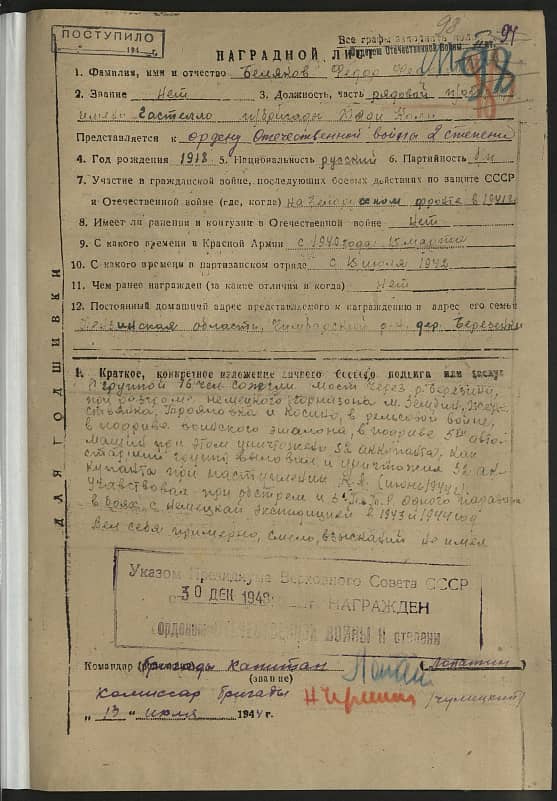 ПОСТУПИЛО
194 г.
98
Все графы заполнять
94
98
НАГРАДНОЙ ЛИСТ
Орденом Отечественной Войны II ст.
1. Фамилия, имя и отчество Беляков Федор
2. Звание нет 3. Должность, часть рядовой п/о
имени Гастелло п/бригады Дяди Коли
Представляется к ордену Отечественной война 2 степени
4. Год рождения 1918 5. Национальность русский 6. Партийность б/п
7. Участие в гражданской войне, последующих боевых действиях по защите СССР
и Отечественной войне (где, когда) на фронте в 1942
8. Имеет ли ранения и контузии в Отечественной войне нет
9. С какого времени в Красной Армии с 1942 года марта
10. С какого времени в партизанском отряде с июля 1942
11. Чем ранее награжден (за какие отличия и когда) нет
12. Постоянный домашний адрес представляемого к награждению и адрес его семьи
Пензинская области, Чембарский р-н, дер.
ДЛЯ ПОДШИВКИ
1. Краткое, конкретное изложение личного боевого подвига или заслуг
В группой 16 чел сожгли мост через р. Березина,
при разгроме немецкого горнизона м. Зембин,
Трояновка и Косино, в рельсовой войне,
в подрыве воинского эшалона, в подрыве 5 авто
машин при этом уничтожено 32 аккупанта. Как
старший групп выловил и уничтожил 52 ак-
купанта при наступлении К.А. (июнь 1944 г)
участвовал при обстреле одного паравоза
в боях с немецкой экспедицией в 1943 и 1944 году
Вел себя примерно, смело, взысканий не имел
Указом Президиума Верховного Совета СССР
30 ДЕК 1948 НАГРАЖДЕН
орденом ОТЕЧЕСТВЕННОЙ ВОЙНЫ II степени
Командир бригады Капитан (Лопатин)
(звание)
Комиссар бригады (Чулицкий)
„13“ июля 1944 г.